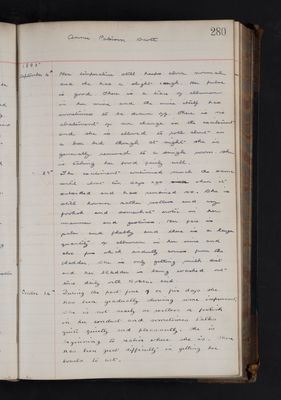 280
Annie Pattison Scott
1895
September 4th Her temperature still keeps above normal
and she has a slight cough. Her pulse
is good. There is a trace of albumen
in her urine and the urine still has
sometimes to be drawn off. There is no
abatement of or change in the excitement
and she is allowed to roll about on
a box bed though at night she is
generally removed to a single room. She
is taking her food fairly well.
The excitement continued much the same
until about ten days ago when she
and has remained so. She is
still however rather restless and very
foolish and somewhat in her
manner and gestures. Her face is
pale and flabby and there is a large
quantity of albumen in her urine and
also pus which evidently comes from the
bladder. She is only getting milk diet
and her bladder is being washed out
daily with Boracic acid
October 14th During the past four or five days she
has been gradually showing some improvement
She is not nearly so restless or foolish
in her conduct and sometimes talks
quite quietly and pleasantly. She is
beginning to realise where she is. There
has been great difficulty in getting her
bowels to act.